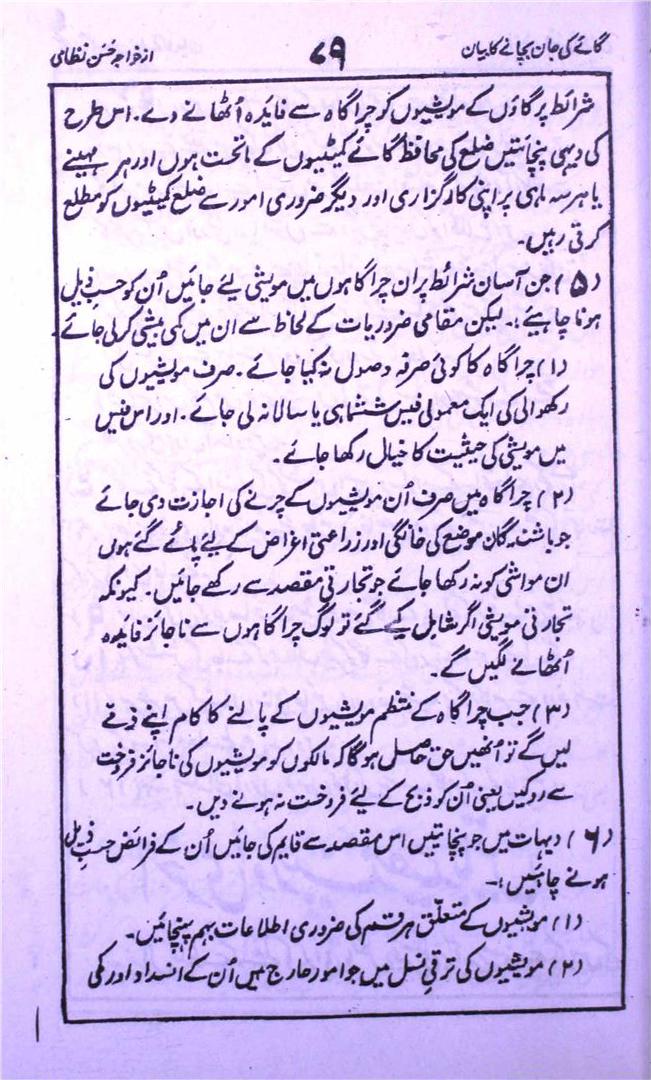 گائے کی جان بچانے کا بیان ۷۹ از خواجہ حسن نظامی
شرائط پر گاؤں کے مویشیوں کو چراگاہ سے فایدہ اُٹھانے دے۔ اس طرح
کی دیہی پنچائتیں ضلع کی محافظ گائے کمیٹیوں کے ماتحت ہوں اور ہر مہینے
یا ہر سہ ماہی پر اپنی کارگزاری اور دیگر ضروری امور سے ضلع کمیٹیوں کو مطلع
کرتی رہیں۔
(۵) جن آسان شرائط پر ان چراگاہوں میں مویشی لیے جائیں اُن کو حسب ذیل
ہونا چاہیئے:۔ لیکن مقامی ضروریات کے لحاظ سے ان میں کمی بیشی کر لی جائے۔
(۱) چراگاہ کا کوئی صرفہ وصول نہ کیا جائے۔ صرف مویشیوں کی
رکھوالی کی ایک معمولی فیس ششماہی یا سالانہ لی جائے۔ اور اس فیس
میں مویشی کی حیثیت کا خیال رکھا جائے۔
(۲) چراگاہ میں صرف اُن مویشیوں کے چرنے کی اجازت دی جائے
جو باشندگان موضع کی خانگی اور زراعتی اغراض کے لیئے پالے گئے ہوں
ان مواشی کو نہ رکھا جائے جو تجارتی مقصد سے رکھے جائیں۔ کیونکہ
تجارتی مویشی اگر شامل کیے گئے تو لوگ چراگاہوں سے ناجائز فایدہ
اُٹھانے لگیں گے۔
(۳) جب چراگاہ کے منتظم مویشیوں کے پالنے کا کام اپنے ذمّے
لیں گے تو اُنھیں حق حاصل ہوگا کہ مالکوں کو مویشیوں کی ناجائز فرخت
سے روکیں یعنی اُن کو ذبح کے لیے فروخت نہ ہونے دیں۔
(۶) دیہات میں جو پنچائتیں اس مقصد سے قایم کی جائیں اُن کے فرائض حسب ذیل
ہونے چاہئیں:۔
(۱) مویشیوں کے متعلّق ہر قسم کی ضروری اطلاعات بہم پہنچائیں۔
(۲) مویشیوں کی ترقی نسل میں جو امور حارج ہیں اُن کے انسداد اور مکی